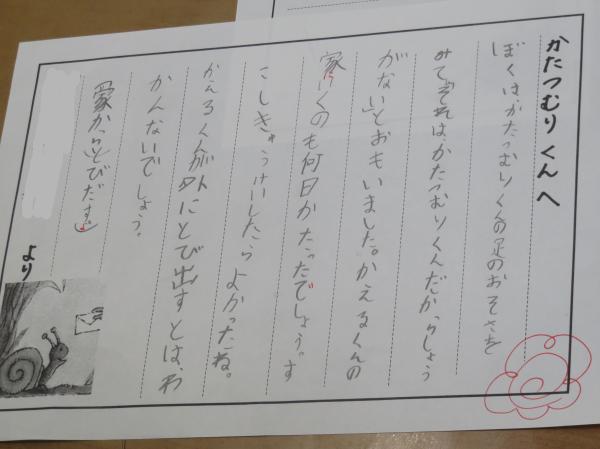 かたつむりくんへ
ぼくはかたつむりくんの足のおそさを
みて「それは、かたつむりくんだからしょう
がない」とおもいました。かえるくんの
家いくのも何日かたったでしょう。す
こしきゅうけいしたらよかったね。
かえるくんが外にとび出すとは、わ
かんないでしょう。
「家からとびだす。」
より